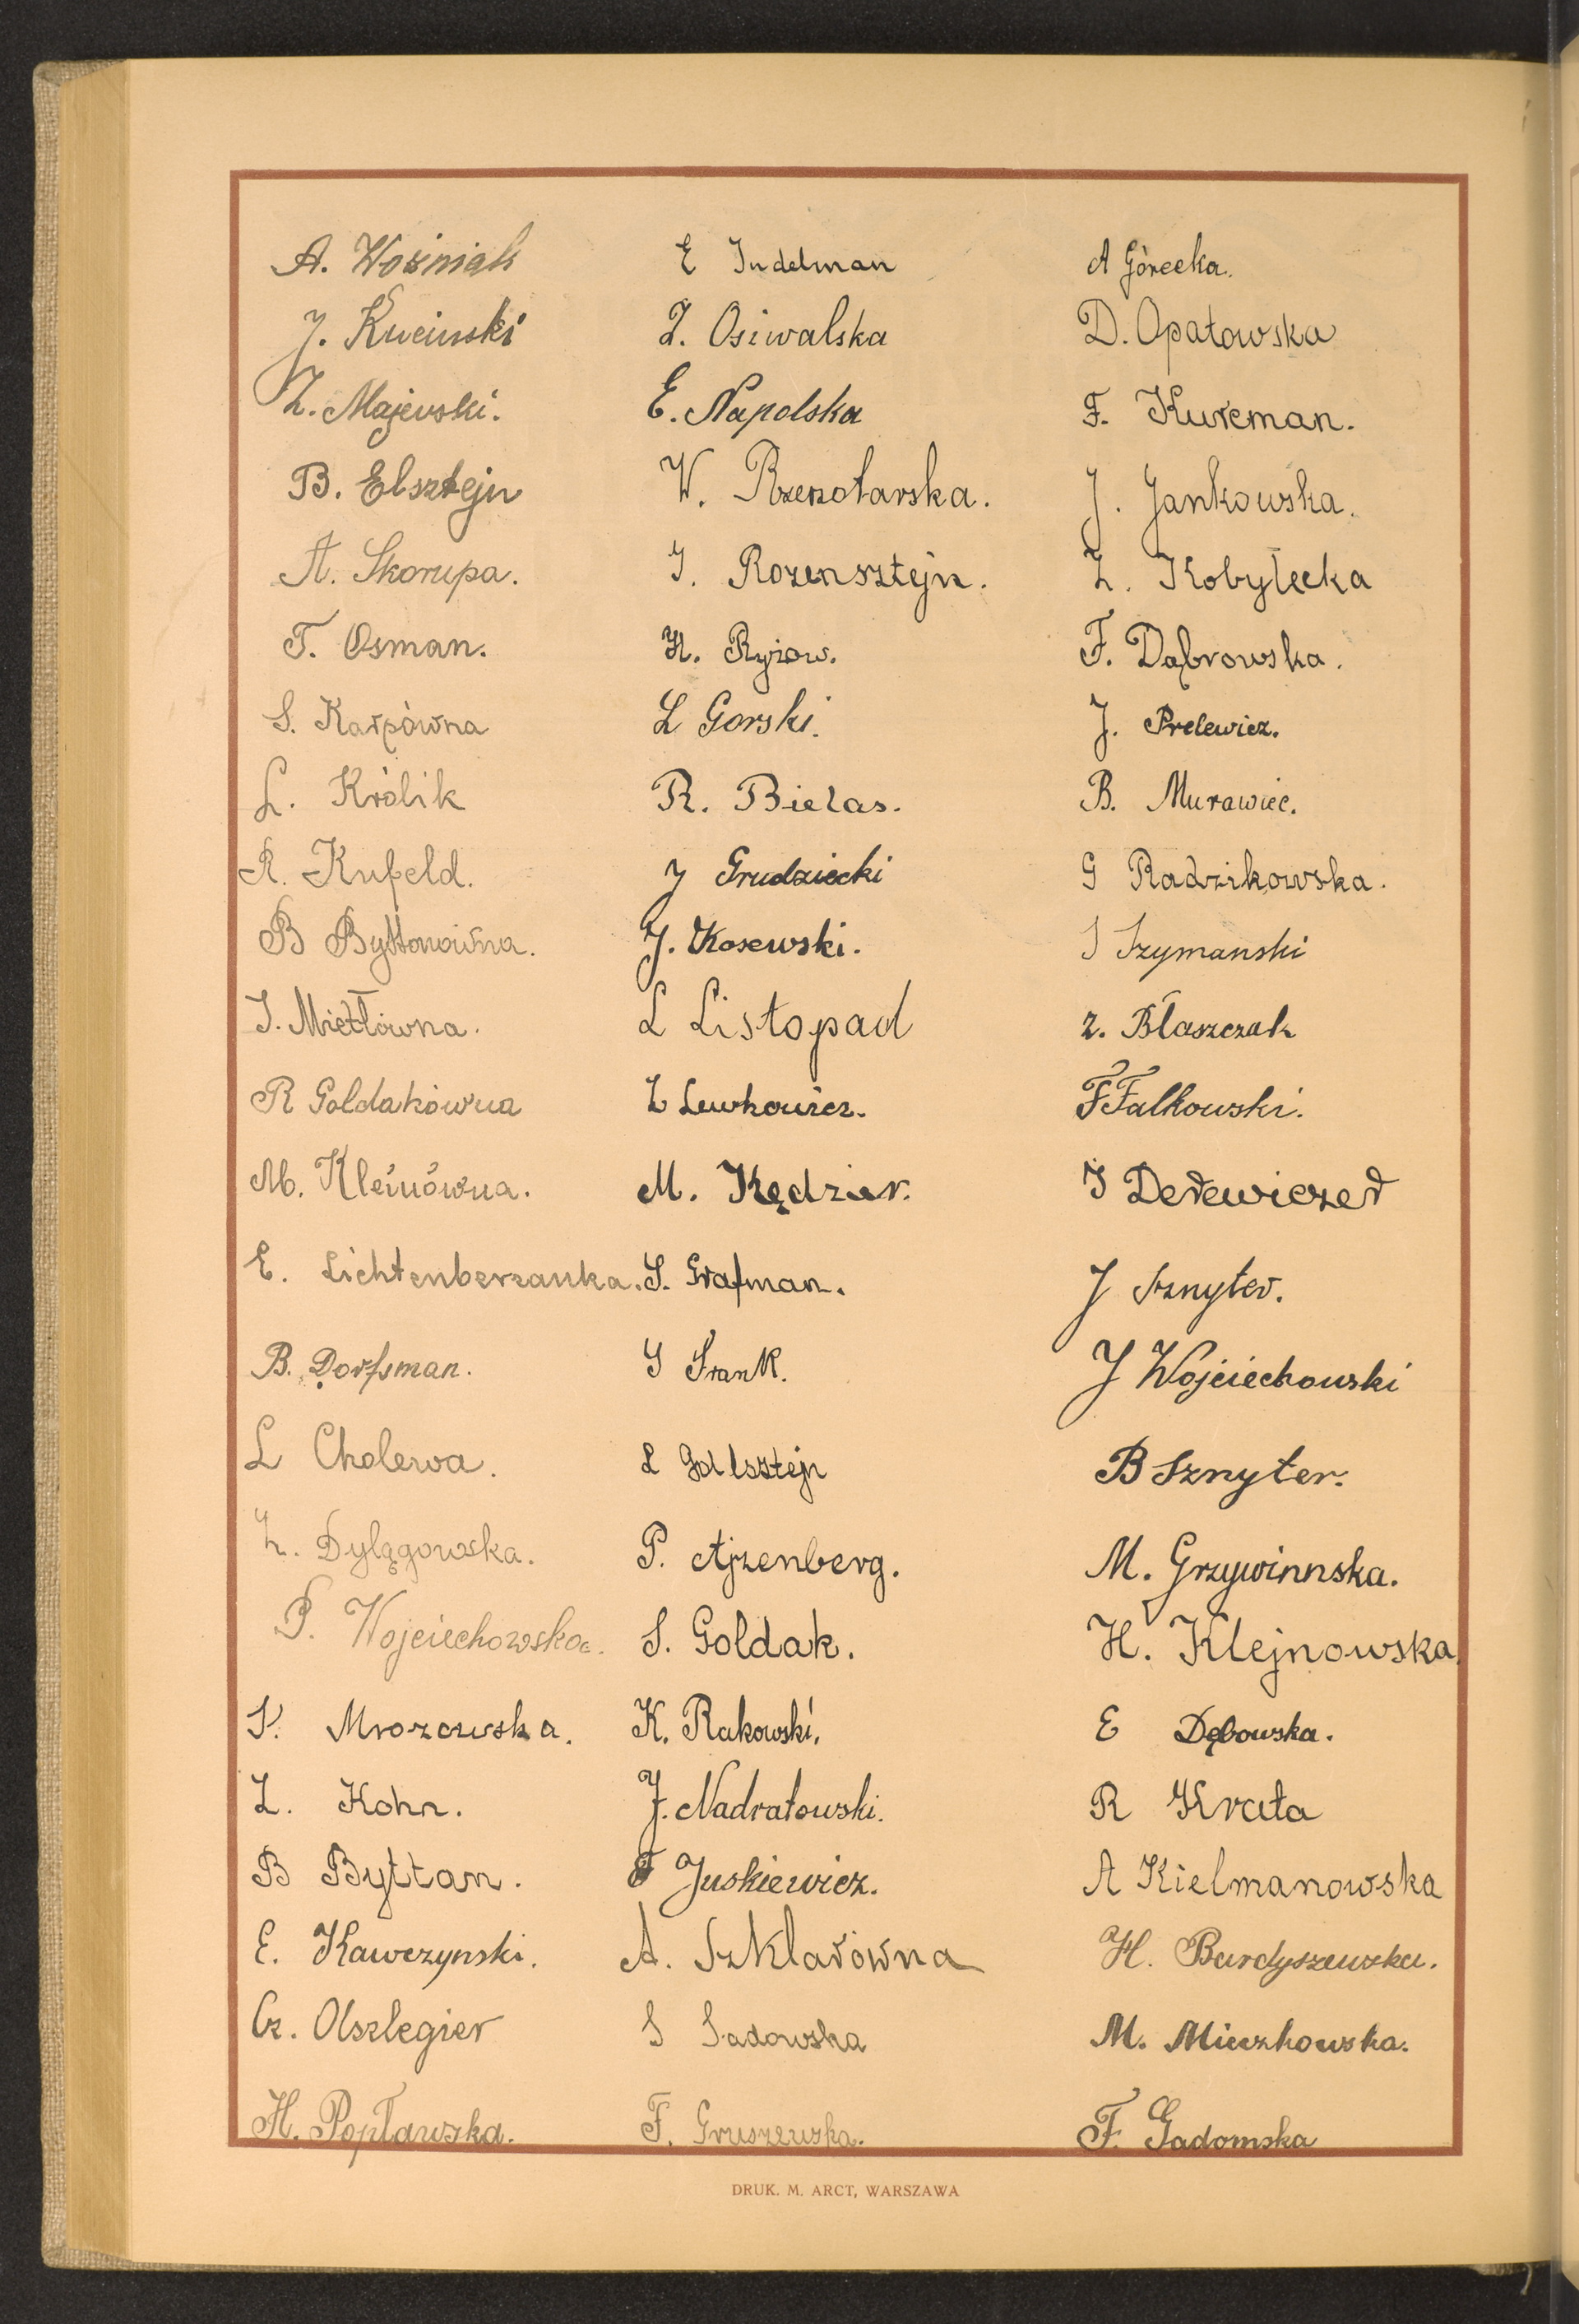 A. Woźniak
J. Kuciński
Z. Majewski.
B. Elsztejn
A. Skorupa.
T. Osman.
S. Karpówna
L. Królik
R. Kufeld.
B Byttonówna.
J. Mietłówna.
R Goldakówna
M. Kleinówna.
E. Lichtenberzanka.
B. Dorfsman.
L Cholewa.
Z. Dylągowska.
P. Wojciechowska.
S. Mrozowska.
Z. Kohn.
B Byttan.
E. Kawczynski.
Cz. Olszlegier
H. Popławska.
E Judelman
Z. Osiwalska
E. Napolska
W. Rzezotarska.
J. Rozensztejn.
H. Ryżow.
L Gorski.
R. Bielas.
J Grudziecki
J. Kosewski.
L Listopad
L Lewkowicz.
M. Kędzier.
S. Grafman.
J Frank.
L Goldsztejn
P. Ajzenberg.
S. Goldak.
K. Rakowski.
J. Nadratowski.
F Juskiewicz.
A. Szklarówna
S Sadowska
F. Gruszewska.
A Górecka.
D. Opatowska
F. Kureman.
J. Jankowska.
Z. Kobyłecka
F. Dąbrowska.
J. Prelewicz.
B. Murawiec.
G Radzikowska.
S Szymanski
Z. Błaszczak
F Falkowski.
J Derewiczer
J Sznyter.
J Wojciechowski
B Sznyter.
M. Grzywinnska.
H. Klejnowska.
E Dębowska.
R Krata
A Kielmanowska
H. Bardyszewska.
M. Mieczkowska.
F. Gadomska
DRUK. M. ARCT, WARSZAWA